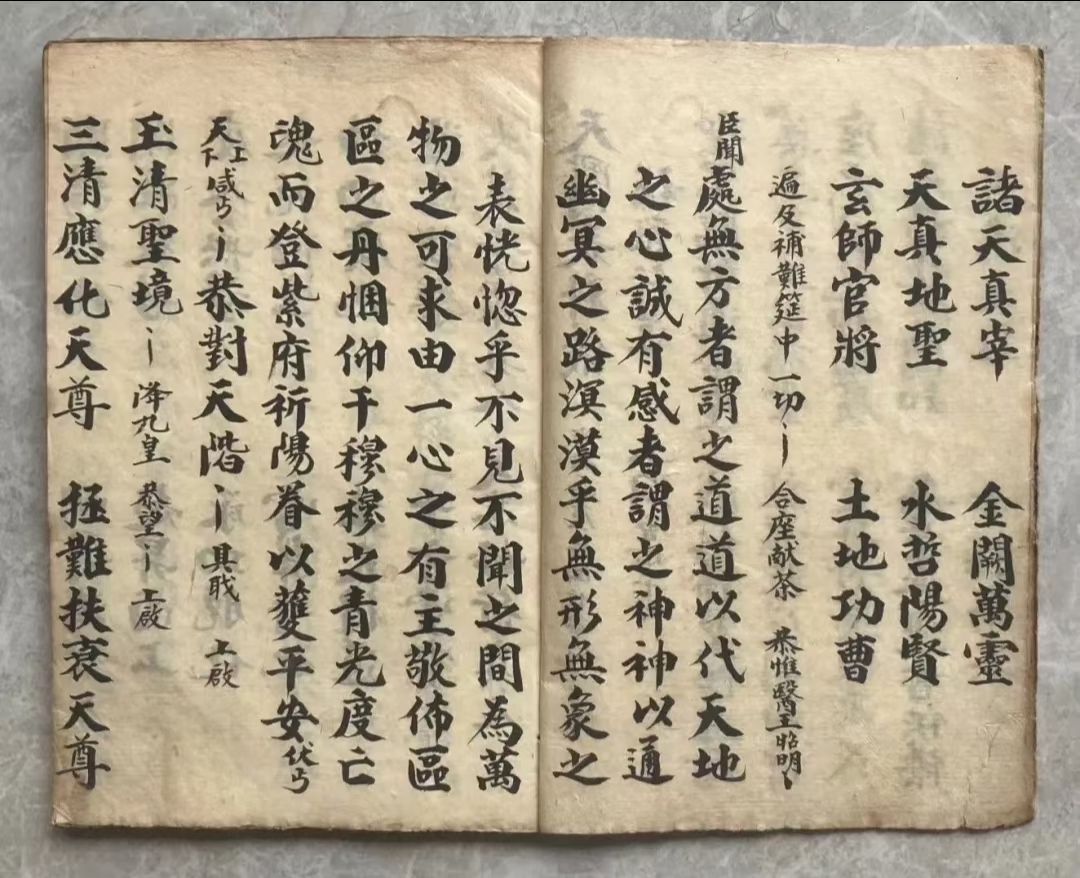 諸天真宰　金闕萬靈
天真地聖　水哲陽賢
玄師官將　土地功曹
遍及補難筵中一切〻　合座献茶　恭惟醫王昭明〻
臣聞處無方者謂之道道以代天地
之心誠有感者謂之神神以通
幽冥之路溟漠乎無形無象之
表恍惚乎不見不聞之間為萬
物之可求由一心之有主敬佈區
區之丹悃仰干穆穆之青光度亡
魂而登紫府祈陽眷以䕶平安伏丐
天上下咸丐〻恭對天階〻具戢　上啟
玉清聖境〻降九皇　恭望〻　上啟
三清應化天尊　拯難扶衰天尊